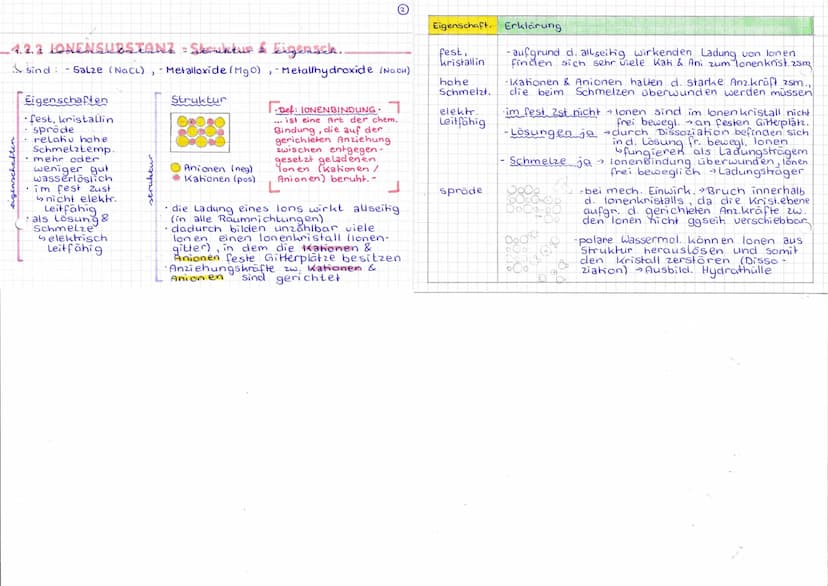 2
4.2.2 IONENSUBSTANZ = Struktur & Eigensch.
↳ sind: - Salze (NaCL), - Metalloxide (MgO), - Metallhydroxide (NaOH)
eigenschaften
Eigenschaften
· fest, kristallin
· spröde
· relativ hohe
Schmelztemp.
· mehr oder
weniger gut
wasserlöslich
· im fest Zust
↳ nicht elektr.
Leitfähig
· als Lösung &
Schmelze
↳ elektrisch
Leitfähig
struktur
Struktur
Anionen (neg)
Kationen (pos)
· Def: IONENBINDUNG ·
... ist eine Art der chem.
Bindung, die auf der
gerichteten Anziehung
zwischen entgegen-
gesetzt geladenen
Ionen (Kationen /
Anionen) beruht. -
· die Ladung eines Ions wirkt allseitig
(in alle Raumrichtungen)
· dadurch bilden unzählbar viele
Ionen einen Ionenkristall (Ionen-
gitter), in dem die Kationen &
Anionen feste Gitterplätze besitzen
· Anziehungskräfte zw. Kationen &
Anionen sind gerichtet
Eigenschaft. Erklärung
fest, kristallin
- aufgrund d. allseitig wirkenden Ladung von Ionen
finden sich sehr viele Kat & Ani zum Ionenkrist. zsm
hohe Schmelzt.
- Kationen & Anionen halten d. starke Anz.kräft zsm.,
die beim Schmelzen überwunden werden müssen
elektr. Leitfähig
- im fest Zst nicht → Ionen sind im Ionenkristall nicht
frei bewegl. → an festen Gitterplätz.
- Lösungen ja → durch Dissoziation befinden sich
in d. Lösung fr. bewegl. Ionen
↳ fungieren als Ladungsträgern
- Schmelze ja → Ionenbindung überwunden, Ionen
frei beweglich → Ladungsträger
spröde
- bei mech. Einwirk. → Bruch innerhalb
d. Ionenkristalls, da die Krist.ebene
aufgr. d. gerichteten Anz.kräfte zw.
den Ionen nicht ggseit. verschiebbar
- polare Wassermol. können Ionen aus
Struktur herauslösen und somit
den Kristall zerstören (Disso-
ziation) → Ausbild. Hydrathülle